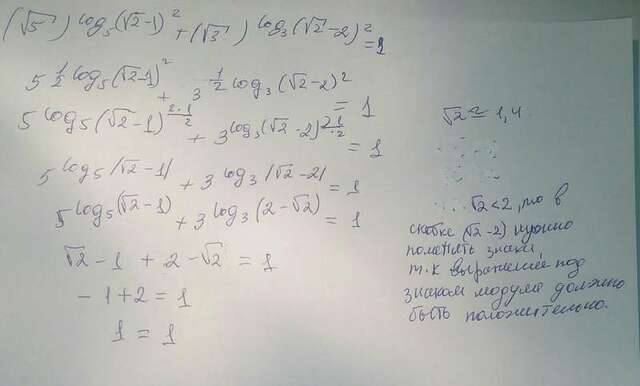 (√5) log₅(√2-1)² + (√3) log₃(√2-2)² = 1
5 ½ log₅(√2-1)² + 3 ½ log₃(√2-2)² = 1
5 log₅(√2-1)^(2·1/2) + 3 log₃(√2-2)^(2·1/2) = 1
5 log₅|√2-1| + 3 log₃|√2-2| = 1
5 log₅(√2-1) + 3 log₃(2-√2) = 1
√2-1 + 2-√2 = 1
-1+2 = 1
1 = 1
√2 ≈ 1,4.
√2<2, то в
скобке (√2-2) нужно
поменять знаки,
т.к выражение под
знаком модуля должно
быть положительно.